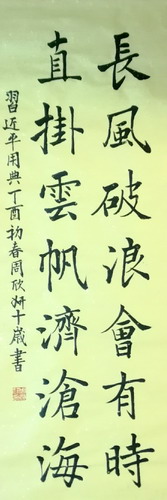 長風破浪會有時
直掛雲帆濟滄海
習近平用典丁酉初春周欣妍十歲書